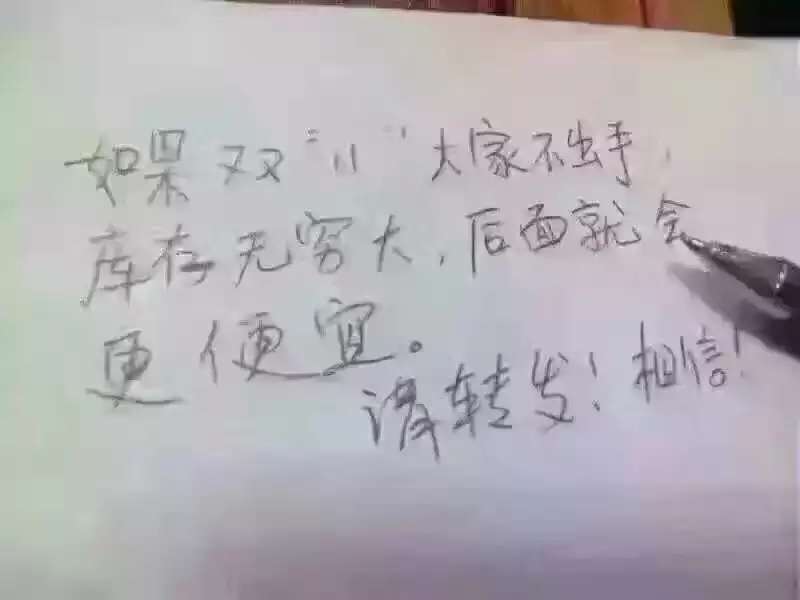 如果双"11"大家不出手,
库存无穷大,后面就会
更便宜。
请转发!相信!